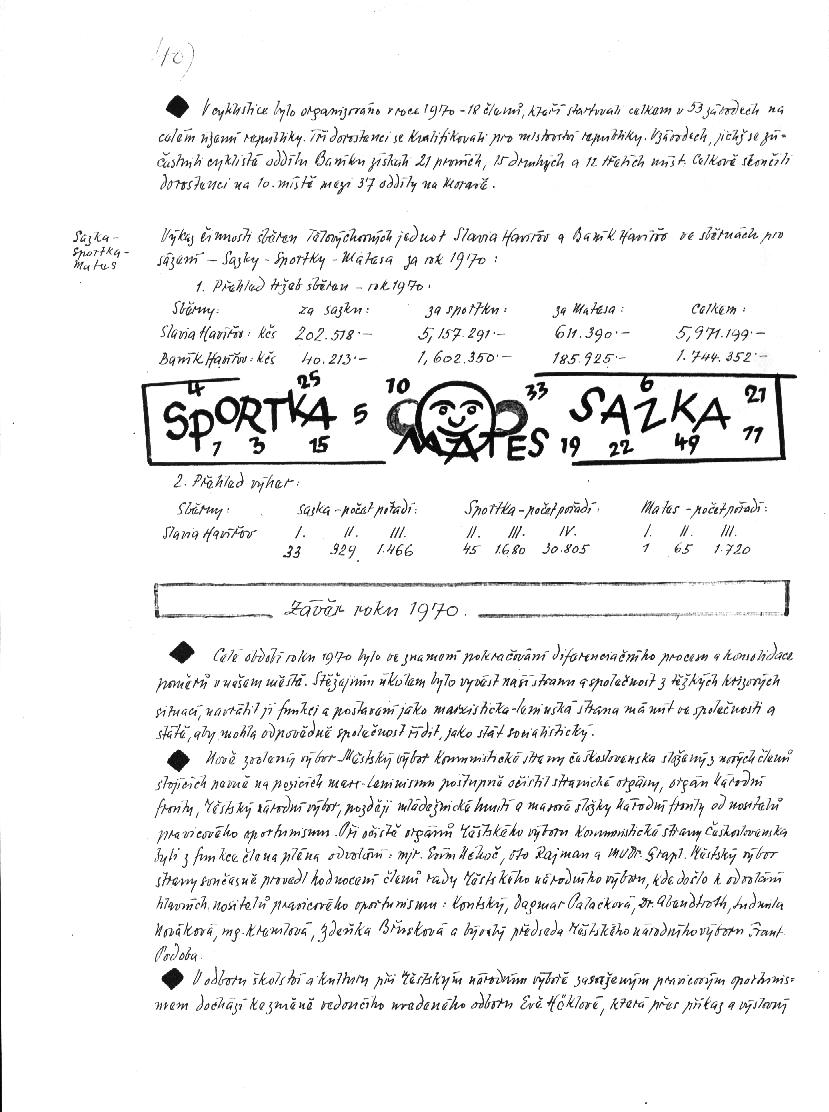 10)
V cyklistice bylo organizováno v roce 1970 - 18 členů, kteří startovali celkem v 53 závodech na
celém území republiky. Tři dorostenci se kvalifikovali pro mistrovství republiky. V závodech, jichž se zú=
častnili cyklisté oddílu Baníku získali 21 prvních, 15 druhých a 12 třetích míst. Celkově skončili
dorostenci na 10. místě mezi 37 oddíly na Moravě.
Sazka-
Sportka-
Mates
Výkaz činnosti sběren Tělovýchovných jednot Slavia Havířov a Baník Havířov ve sběrnách pro
sázení - Sazky - Sportky - Matesa za rok 1970:
1. Přehled tržeb sběren - rok 1970:
Sběrny: za sazku: za sportku: za Matesa: Celkem:
Slavia Havířov: kčs 202.518.- 5,157.291.- 611.390.- 5,971.199.-
Baník Havířov: kčs 40.213.- 1,602.350.- 185.925.- 1.744.352.-
4 25 10 33 6 21
SPORTKA 5 MATES SAZKA
7 3 15 19 22 49 77
2. Přehled výher:
Sběrny: Sazka - počet pořadí: Sportka - počet pořadí: Mates - počet pořadí:
Slavia Havířov I. II. III. II. III. IV. I. II. III.
33 929 1.466 45 1.680 30.805 1 65 1.720
Závěr roku 1970.
Celé období roku 1970 bylo ve znamení pokračování diferenciačního procesu a konsolidace
poměrů v našem městě. Stěžejním úkolem bylo vyvést naši stranu a společnost z těžkých krizových
situací, navrátit jí funkci a postavení jako marxisticko-leninská strana má mít ve společnosti a
státě, aby mohla odpovědně společnost řídit, jako stát socialistický.
Nově zvolený výbor Městský výbor Komunistické strany Československa složený z nových členů
stojících pevně na pozicích marx-leninismu postupně očistil stranické orgány, orgán Národní
fronty, Městský národní výbor, později mládežnické hnutí a masové složky Národní fronty od nositelů
pravicového oportunismu. Při očistě orgánů Městského výboru Komunistické strany Československa
byli z funkce člena pléna odvoláni: mjr. Evžn Oto Rajman a MUDr. Grapl. Městský výbor
strany současně provedl hodnocení členů rady Městského národního výboru, kde došlo k odvolání
hlavních nositelů pravicového oportunismu: Kontský, Dagmar Palačková, Dr. Abendroth, Ludmila
Nováková, mg. Kremlová, Zdeňka Břusková a bývalý předseda Městského národního výboru Frant.
Podoba.
V odboru školství a kultury při Městským národním výboře zasaženým pravicovým oportunis=
mem dochází ke změně vedoucího uvedeného odboru Evě Höklové, která přes příkaz a výslovný